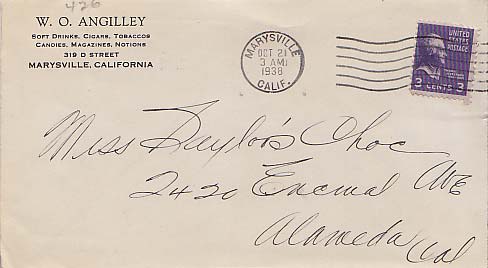 426
W. O. ANGILLEY
SOFT DRINKS, CIGARS, TOBACCOS
CANDIES, MAGAZINES, NOTIONS
319 D STREET
MARYSVILLE, CALIFORNIA
MARYSVILLE
OCT 21
3 AM
1938
CALIF.
UNITED
STATES
POSTAGE
3 CENTS 3
Miss Saylor's Choc
2420 Encinal Ave
Alameda Cal